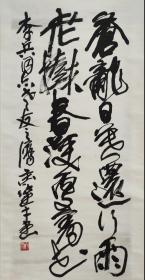 蒼龍日暮還行雨
老樹春深更著花
李兵同志